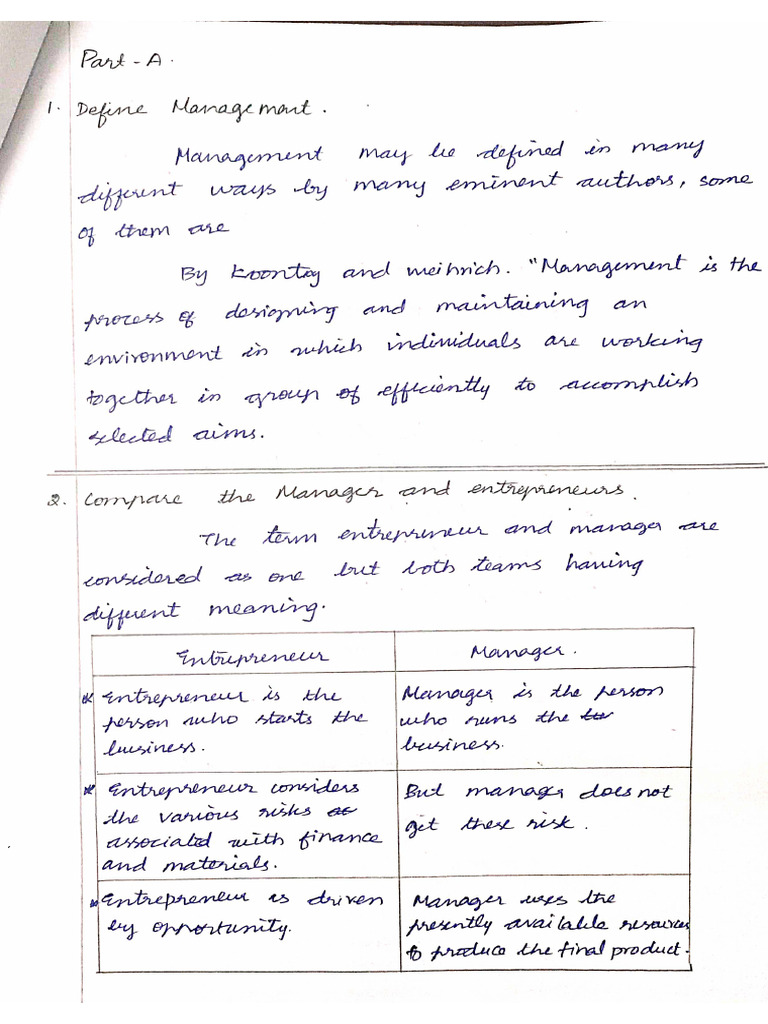 Part - A.
1. Define Management.
Management may be defined in many
different ways by many eminent authors, some
of them are
By Koontz and Weihrich. "Management is the
process of designing and maintaining an
environment in which individuals are working
together in group of efficiently to accomplish
selected aims.
2. Compare the Manager and entrepreneurs.
The term entrepreneur and manager are
considered as one but both teams having
different meaning.
Entrepreneur
Manager.
* Entrepreneur is the
person who starts the
business.
Manager is the person
who runs the
business.
* Entrepreneur considers
the various risks
associated with finance
and materials.
But manager does not
get these risk.
* Entrepreneur is driven
by opportunity.
Manager uses the
presently available resources
to produce the final product.